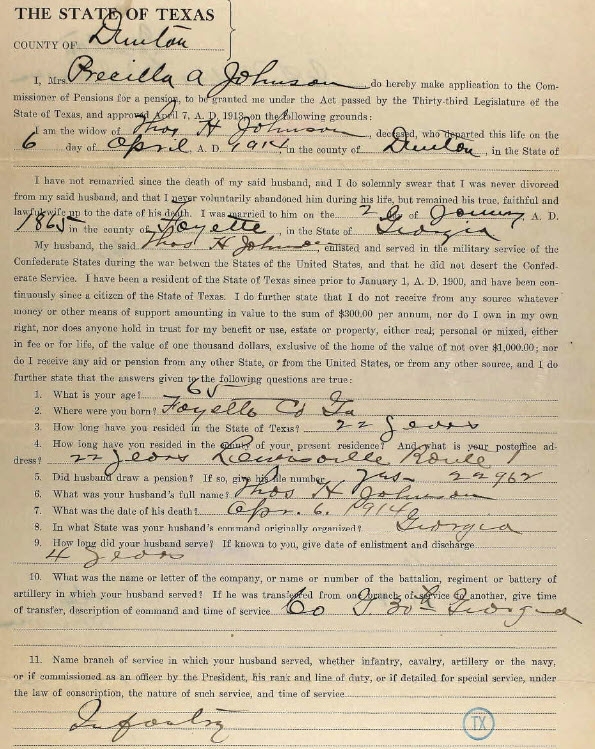 THE STATE OF TEXAS
COUNTY OF Denton
I, Mrs. Precilla A Johnson do hereby make application to the Com-
missioner of Pensions for a pension, to be granted me under the Act passed by the Thirty-third Legislature of the
State of Texas, and approved April 7, A. D. 1913, on the following grounds:
I am the widow of Thos H Johnson, deceased, who departed this life on the
6 day of April A. D. 1914, in the county of Denton, in the State of
I have not remarried since the death of my said husband, and I do solemnly swear that I was never divorced
from my said husband, and that I never voluntarily abandoned him during his life, but remained his true, faithful and
lawful wife up to the date of his death. I was married to him on the 2 day of A. D.
1865 in the county of Fayette, in the State of Georgia
My husband, the said Thos H Johnson, enlisted and served in the military service of the
Confederate States during the war betwen the States of the United States, and that he did not desert the Confed-
erate Service. I have been a resident of the State of Texas since prior to January 1, A. D. 1900, and have been con-
tinuously since a citizen of the State of Texas. I do further state that I do not receive from any source whatever
money or other means of support amounting in value to the sum of $300.00 per annum, nor do I own in my own
right, nor does anyone hold in trust for my benefit or use, estate or property, either real, personal or mixed, either
in fee or for life, of the value of one thousand dollars, exclusive of the home of the value of not over $1,000.00; nor
do I receive any aid or pension from any other State, or from the United States, or from any other source, and I do
further state that the answers given to the following questions are true:
1. What is your age? 65
2. Where were you born? Fayette Co Ga
3. How long have you resided in the State of Texas? 22 years
4. How long have you resided in the county of your present residence? And what is your postoffice ad-
dress? 22 years Lewisville Route 1
5. Did husband draw a pension? If so, give his file number Yes- 22962
6. What was your husband's full name? Thos H Johnson
7. What was the date of his death? Apr. 6. 1914
8. In what State was your husband's command originally organized? Georgia
9. How long did your husband serve? If known to you, give date of enlistment and discharge
4 years
10. What was the name or letter of the company, or name or number of the battalion, regiment or battery of
artillery in which your husband served? If he was transferred from one branch of service to another, give time
of transfer, description of command and time of service Co 30th Georgia
11. Name branch of service in which your husband served, whether infantry, cavalry, artillery or the navy,
or if commissioned as an officer by the President, his rank and line of duty, or if detailed for special service, under
the law of conscription, the nature of such service, and time of service
Infantry
TX